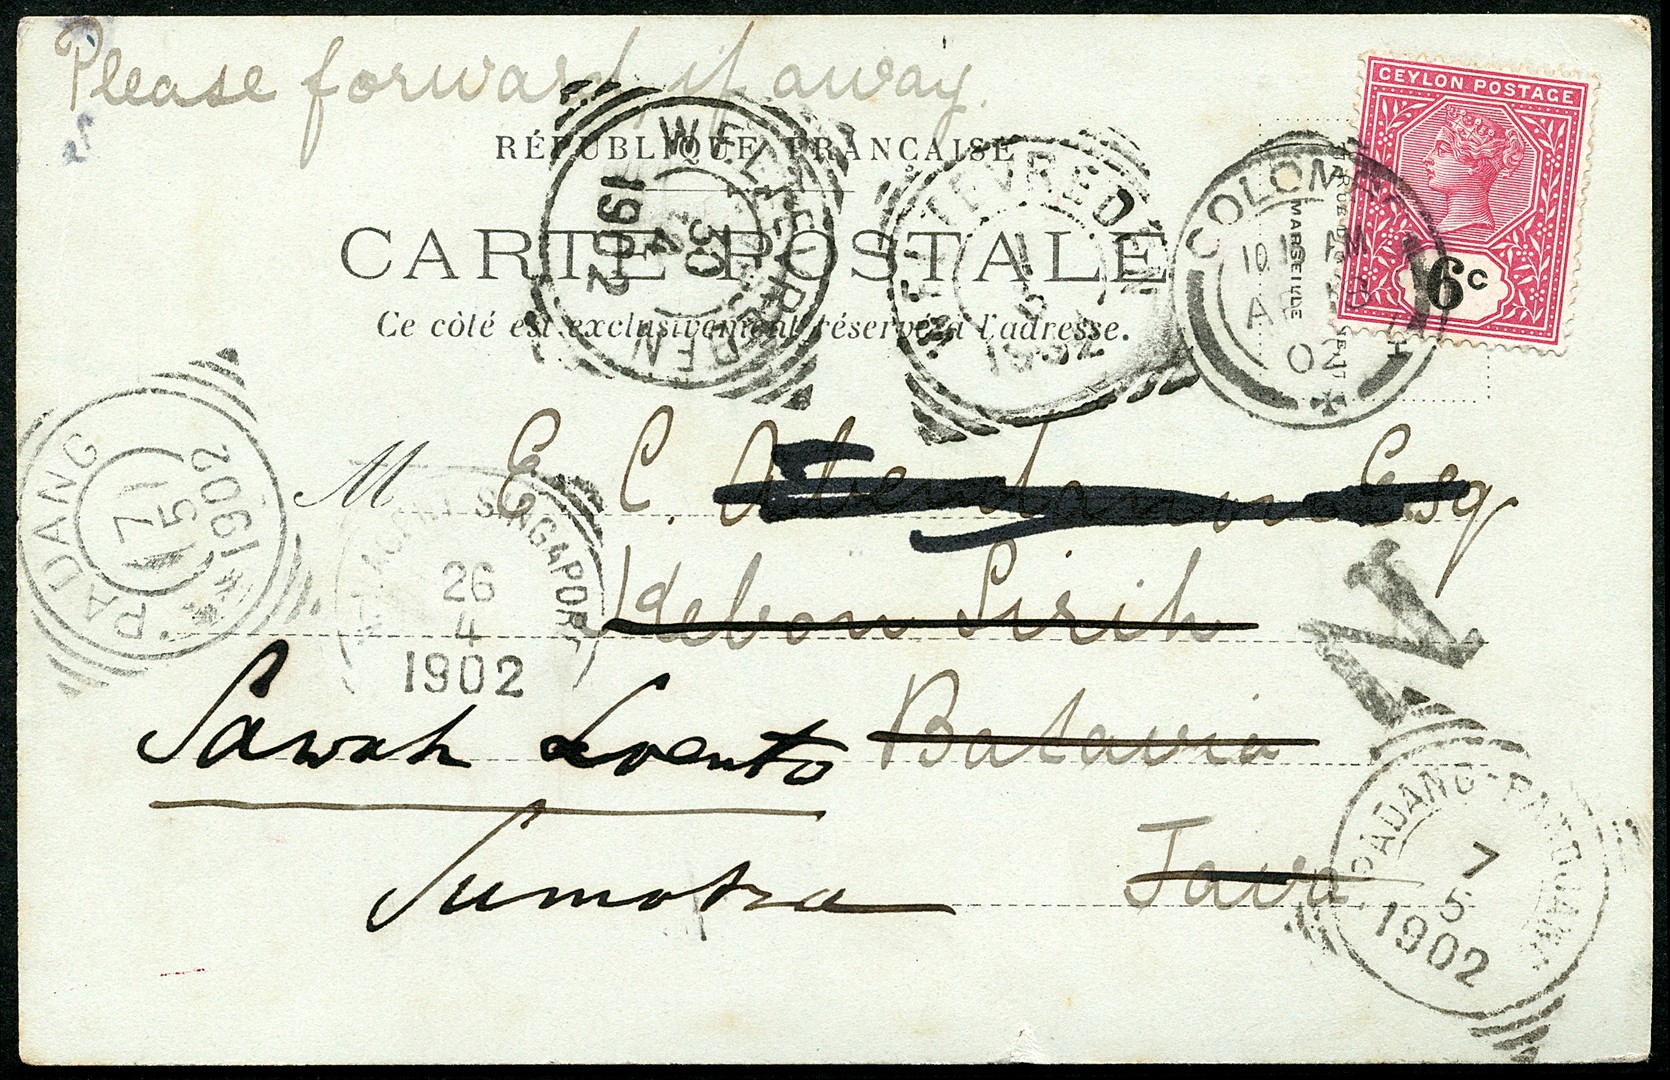 Please forward if away.
CEYLON POSTAGE
6c
RÉPUBLIQUE FRANÇAISE
CARTE POSTALE
Ce côté est exclusivement réservé à l'adresse.
WELTEVREDEN
30
4
1902
WELTEVREDEN
1902
COLOMBO
10 15 AM
02
MARSEILLE
PADANG
7
5
1902
M E C. Esq
SINGAPORE
26
4
1902
Kebon Sirih
N
Sawah Loento Batavia
Sumatra Java
PADANG-PANDJANG
7
5
1902